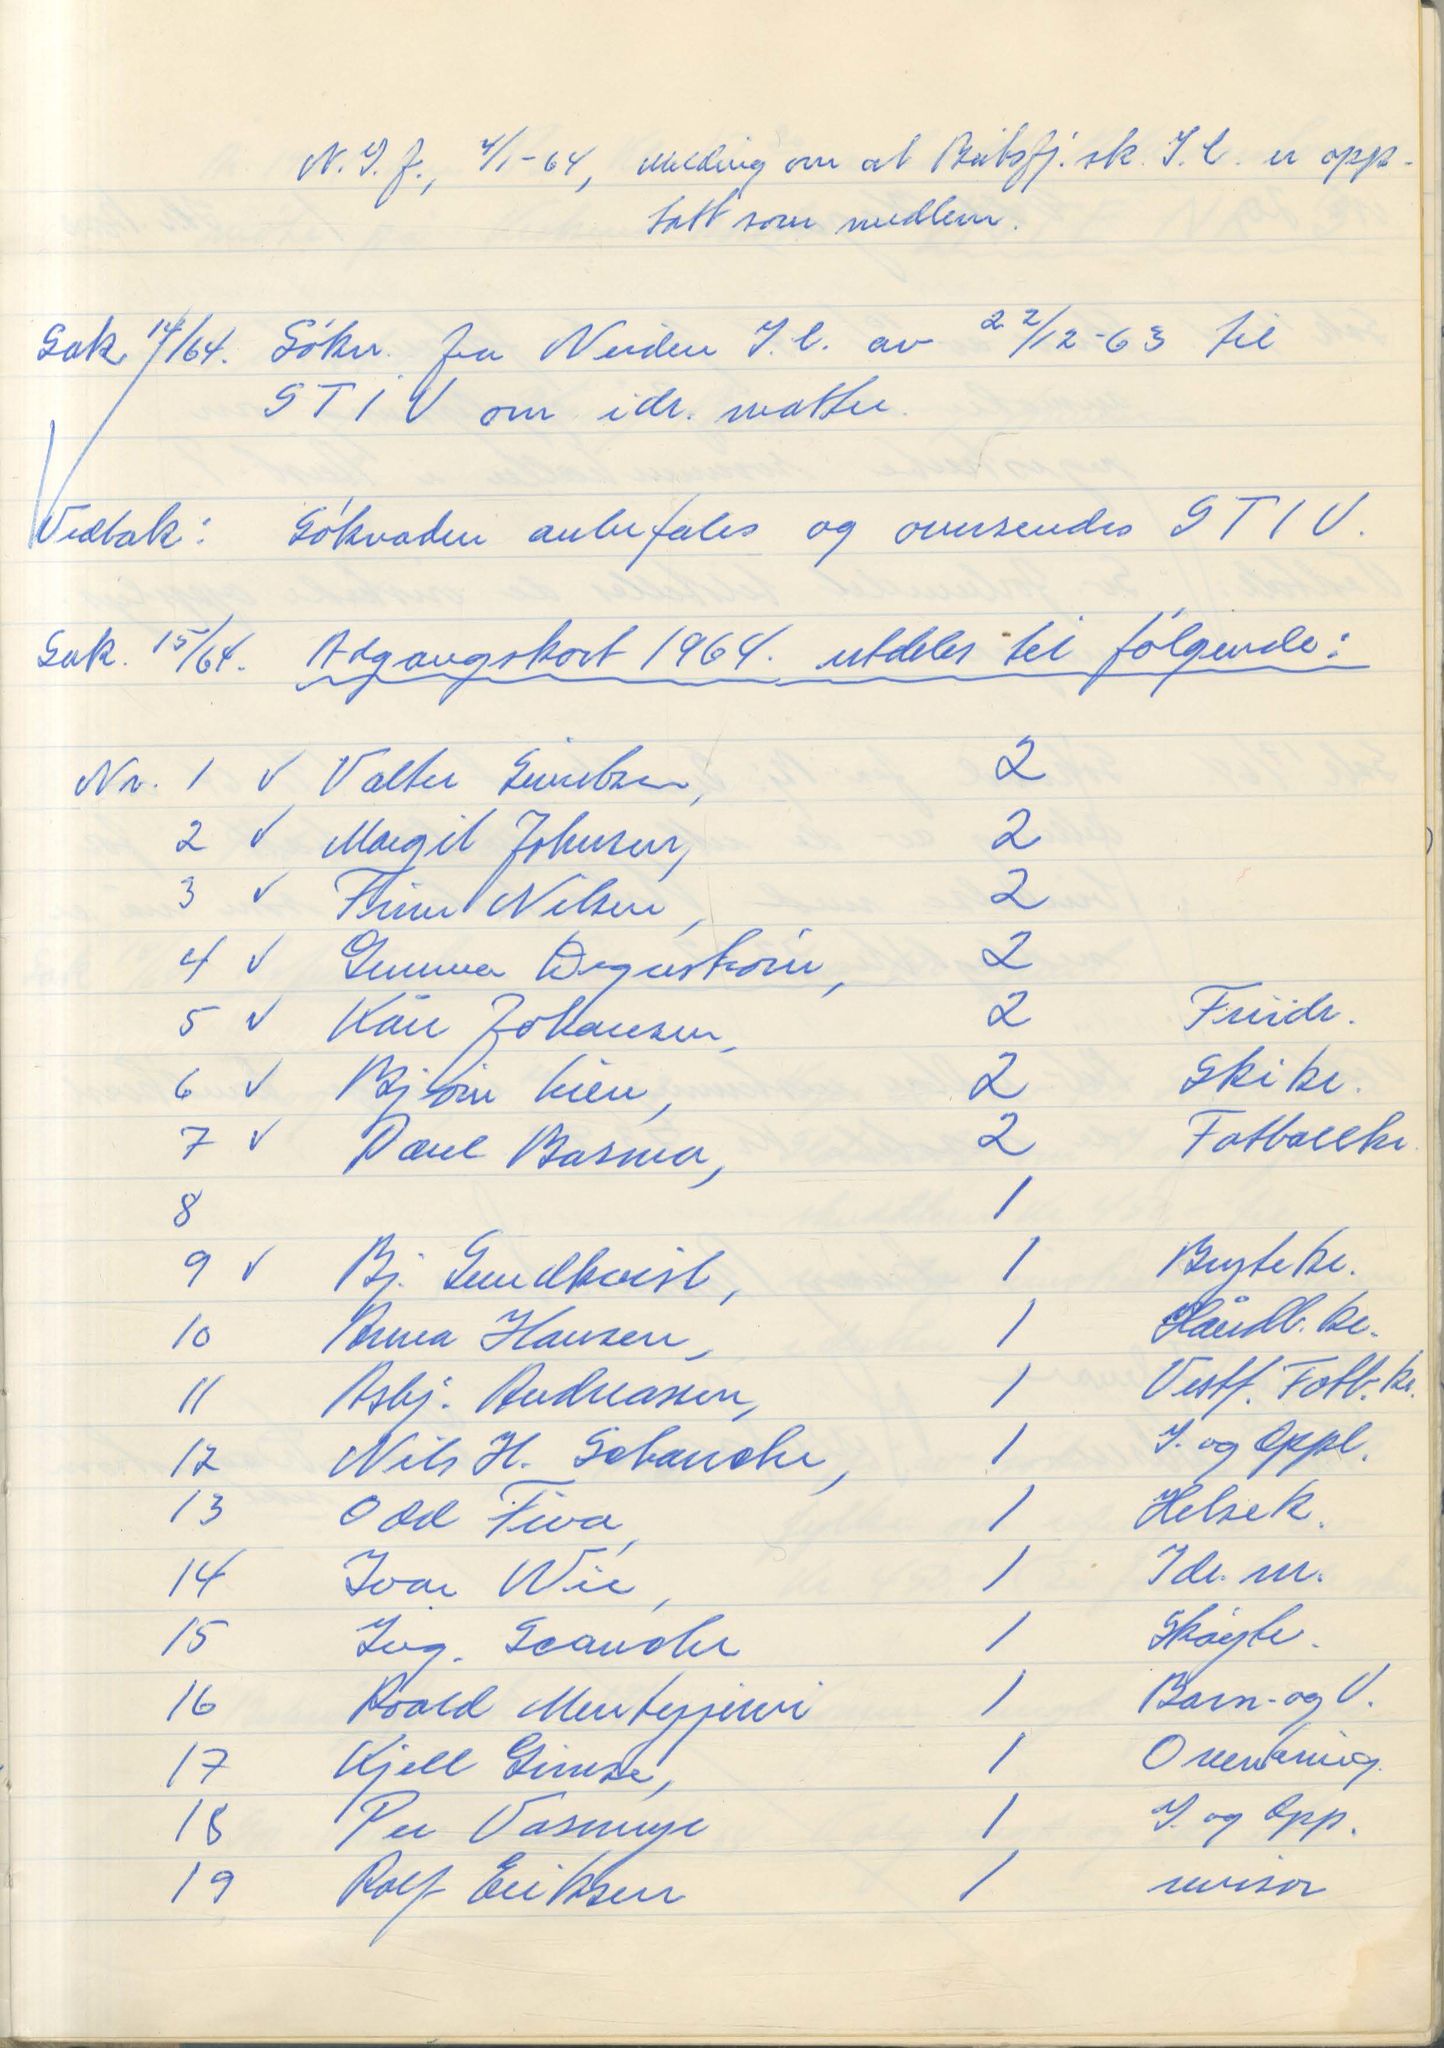 N.I.f., 4/1-64, Melding om at Båtsfj. sk. I.l. er opp-
tatt som medlem.
Sak 14/64. Søkn. fra Neiden I.l. av 22/12-63 til
STIV om idr. matte.
Vedtak: Søknaden anbefales og oversendes STIV.
Sak. 15/64. Adgangskort 1964. utdeles til følgende:
Nr. 1 ✓ Valter Gerrebsen, 2
2 ✓ Margit Johnsen, 2
3 ✓ Finn Nilsen, 2
4 ✓ Gunnar Degerstrøm, 2
5 ✓ Kåre Johansen, 2 Friidr.
6 ✓ Bjørn Lien, 2 Skikr.
7 ✓ Paul Basma, 2 Fotballkr.
8 1
9 ✓ Bj. Sundkvist, 1 Brytekr.
10 Anna Hansen, 1 Håndb. kr.
11 Asbj. Andreassen, 1 Vestf. Fotb. kr.
12 Nils H. Schanche, 1 I. og Oppl.
13 Odd Fivã, 1 Helsek.
14 Ivar Wie, 1 Idr. m.
15 Ing. Scanche 1 Skøyte.
16 Roald Mentyjervi 1 Barn- og U.
17 Kjell Gimse, 1 Overdomming.
18 Per Vasmuge 1 I. og Opp.
19 Rolf Eriksen 1 revisor